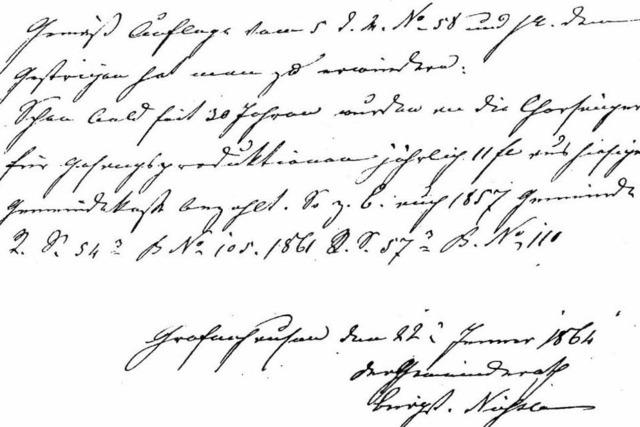 Gemäß Auflage vom 5 d. M. No 58 und dem
Gestrigen hat man zu erwiedern:
Schon bald seit 30 Jahren wurden an die Chorsänger
für Gesangsproduktionen jährlich 11 fl aus hiesiger
Gemeindekasse bezahlt. So z. B. auch 1857 Gemeinde
R. S. 54 B No 105. 1861 R. S. 57 B. No 110
Grafenhausen den 22 Jenner 1864
der Gemeinderath
Burgst.